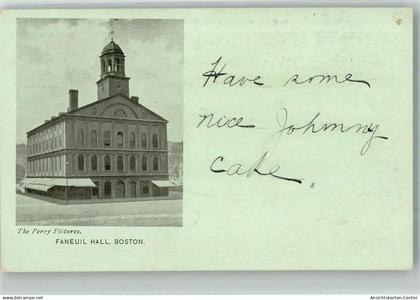 Have some
nice Johnny
cake
The Perry Pictures.
FANEUIL HALL, BOSTON.
www.oldthing.de
Ansichtskarten-Center